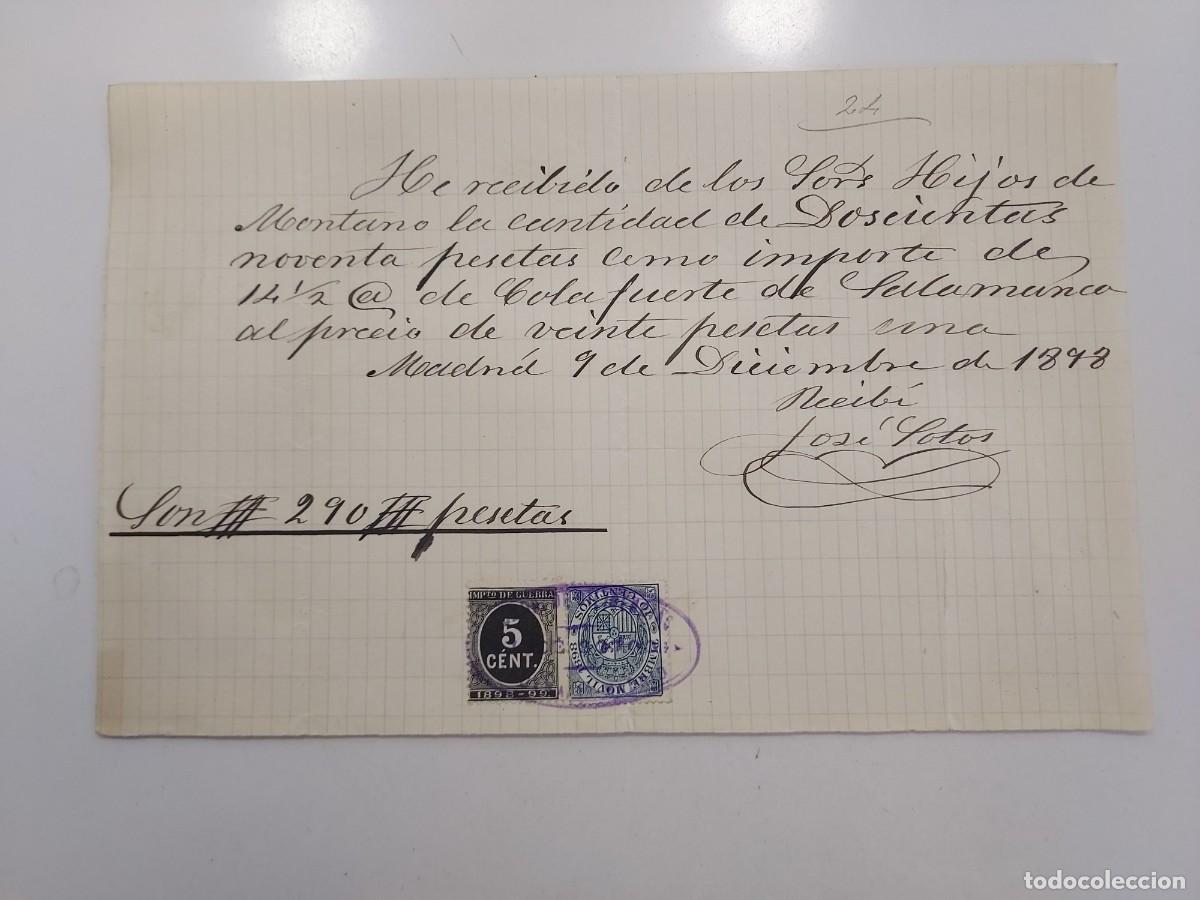 24
He recibido de los Sors Hijos de
Montano la cantidad de Doscientas
noventa pesetas como importe de
14 1/2 @ de Cola fuerte de Salamanca
al precio de veinte pesetas una
Madrid 9 de Diciembre de 1898
Recibí
José Sotos
Son 290 pesetas
IMPTO DE GUERRA
5
CÉNT.
1898-99
10 CENTIMOS
TIMBRE MOVIL 1898
todocoleccion